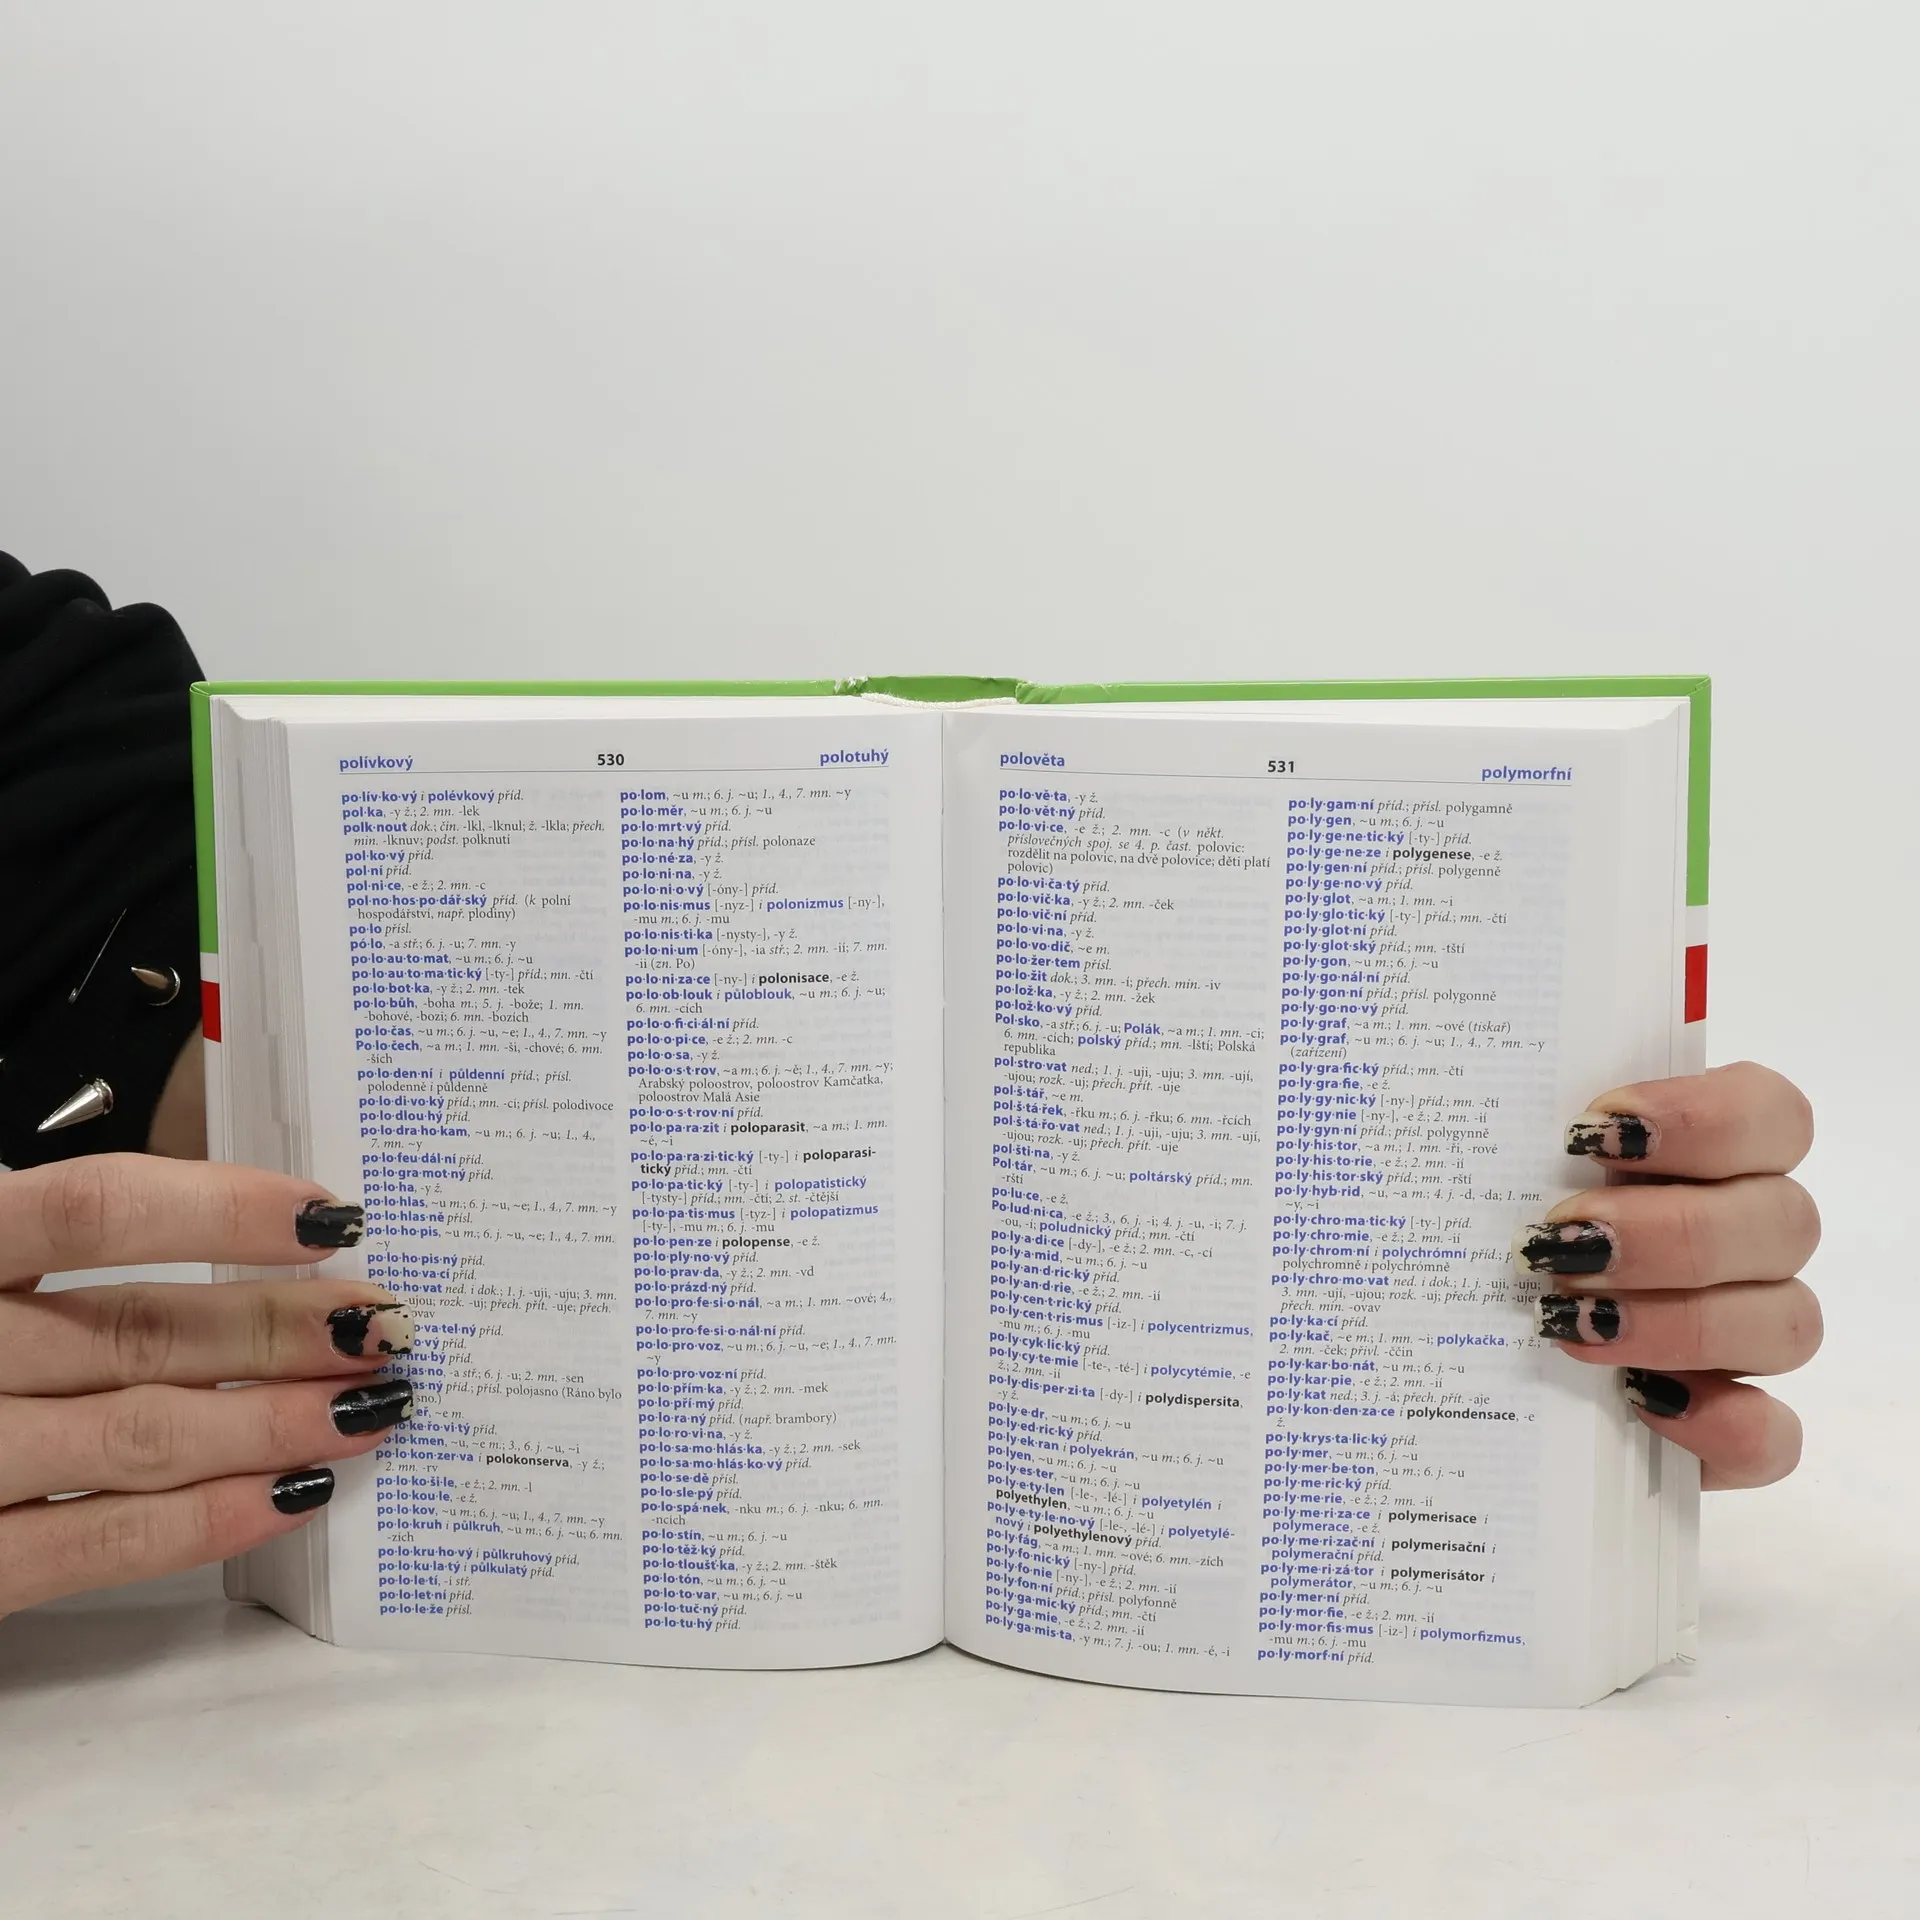 polívkový 530 polotuhý
po·lív·ko·vý i polévkový příd.
pol·ka, -y ž.; 2. mn. -lek
polk·nout dok.; čin. -lkl, -lknul; ž. -lkla; přech.
min. -lknuv; podst. polknutí
pol·ko·vý příd.
pol·ní příd.
pol·ni·ce, -e ž.; 2. mn. -c
pol·no·hos·po·dář·ský příd. (k polní
hospodářství, např. plodiny)
po·lo přísl.
pó·lo, -a stř.; 6. j. -u; 7. mn. -y
po·lo·au·to·mat, ~u m.; 6. j. ~u
po·lo·au·to·ma·tic·ký [-ty-] příd.; mn. -čtí
po·lo·bot·ka, -y ž.; 2. mn. -tek
po·lo·bůh, -boha m.; 5. j. -bože; 1. mn.
-bohové, -bozi; 6. mn. -bozích
po·lo·čas, ~u m.; 6. j. ~u, ~e; 1., 4., 7. mn. ~y
Po·lo·čech, ~a m.; 1. mn. -ši, -chové; 6. mn.
-ších
po·lo·den·ní i půldenní příd.; přísl.
polodenně i půldenně
po·lo·di·vo·ký příd.; mn. -cí; přísl. polodivoce
po·lo·dlou·hý příd.
po·lo·dra·ho·kam, ~u m.; 6. j. ~u; 1., 4.,
7. mn. ~y
po·lo·feu·dál·ní příd.
po·lo·gra·mot·ný příd.
po·lo·ha, -y ž.
po·lo·hlas, ~u m.; 6. j. ~u, ~e; 1., 4., 7. mn. ~y
po·lo·hlas·ně přísl.
po·lo·ho·pis, ~u m.; 6. j. ~u, ~e; 1., 4., 7. mn.
~y
po·lo·ho·pis·ný příd.
po·lo·ho·va·cí příd.
lo·ho·vat ned. i dok.; 1. j. -uji, -uju; 3. mn.
-ujou; rozk. -uj; přech. přít. -uje; přech.
ovav
o·va·tel·ný příd.
o·vý příd.
hru·bý příd.
lo·jas·no, -a stř.; 6. j. -u; 2. mn. -sen
as·ný příd.; přísl. polojasno (Ráno bylo
sno.)
eř, ~e m.
ke·řo·vi·tý příd.
lo·kmen, ~u, ~e m.; 3., 6. j. ~u, ~i
po·lo·kon·zer·va i polokonserva, -y ž.;
2. mn. -rv
po·lo·ko·ši·le, -e ž.; 2. mn. -l
po·lo·kou·le, -e ž.
po·lo·kov, ~u m.; 6. j. ~u; 1., 4., 7. mn. ~y
po·lo·kruh i půlkruh, ~u m.; 6. j. ~u; 6. mn.
-zích
po·lo·kru·ho·vý i půlkruhový příd.
po·lo·ku·la·tý i půlkulatý příd.
po·lo·le·tí, -í stř.
po·lo·let·ní příd.
po·lo·le·že přísl.
po·lom, ~u m.; 6. j. ~u; 1., 4., 7. mn. ~y
po·lo·měr, ~u m.; 6. j. ~u
po·lo·mrt·vý příd.
po·lo·na·hý příd.; přísl. polonaze
po·lo·né·za, -y ž.
po·lo·ni·na, -y ž.
po·lo·ni·o·vý [-óny-] příd.
po·lo·nis·mus [-nyz-] i polonizmus [-ny-],
-mu m.; 6. j. -mu
po·lo·nis·ti·ka [-nysty-], -y ž.
po·lo·ni·um [-óny-], -ia stř.; 2. mn. -ií; 7. mn.
-ii (zn. Po)
po·lo·ni·za·ce [-ny-] i polonisace, -e ž.
po·lo·ob·louk i půloblouk, ~u m.; 6. j. ~u;
6. mn. -cích
po·lo·o·fi·ci·ál·ní příd.
po·lo·o·pi·ce, -e ž.; 2. mn. -c
po·lo·o·sa, -y ž.
po·lo·o·s·t·rov, ~a m.; 6. j. ~ě; 1., 4., 7. mn. ~y;
Arabský poloostrov, poloostrov Kamčatka,
poloostrov Malá Asie
po·lo·o·s·t·rov·ní příd.
po·lo·pa·ra·zit i poloparasit, ~a m.; 1. mn.
~é, ~i
po·lo·pa·ra·zi·tic·ký [-ty-] i poloparasi-
tický příd.; mn. -čtí
po·lo·pa·tic·ký [-ty-] i polopatistický
[-tysty-] příd.; mn. -čtí; 2. st. -čtější
po·lo·pa·tis·mus [-tyz-] i polopatizmus
[-ty-], -mu m.; 6. j. -mu
po·lo·pen·ze i polopense, -e ž.
po·lo·ply·no·vý příd.
po·lo·prav·da, -y ž.; 2. mn. -vd
po·lo·prázd·ný příd.
po·lo·pro·fe·si·o·nál, ~a m.; 1. mn. ~ové; 4.,
7. mn. ~y
po·lo·pro·fe·si·o·nál·ní příd.
po·lo·pro·voz, ~u m.; 6. j. ~u, ~e; 1., 4., 7. mn.
~y
po·lo·pro·voz·ní příd.
po·lo·přím·ka, -y ž.; 2. mn. -mek
po·lo·pří·mý příd.
po·lo·ra·ný příd. (např. brambory)
po·lo·ro·vi·na, -y ž.
po·lo·sa·mo·hlás·ka, -y ž.; 2. mn. -sek
po·lo·sa·mo·hlás·ko·vý příd.
po·lo·se·dě přísl.
po·lo·sle·pý příd.
po·lo·spá·nek, -nku m.; 6. j. -nku; 6. mn.
-ncích
po·lo·stín, ~u m.; 6. j. ~u
po·lo·těž·ký příd.
po·lo·tloušť·ka, -y ž.; 2. mn. -štěk
po·lo·tón, ~u m.; 6. j. ~u
po·lo·to·var, ~u m.; 6. j. ~u
po·lo·tuč·ný příd.
po·lo·tu·hý příd.
polověta 531 polymorfní
po·lo·vě·ta, -y ž.
po·lo·vět·ný příd.
po·lo·vi·ce, -e ž.; 2. mn. -c (v někt.
příslovečných spoj. se 4. p. část. polovic:
rozdělit na polovic, na dvě polovice; děti platí
polovic)
po·lo·vi·ča·tý příd.
po·lo·vič·ka, -y ž.; 2. mn. -ček
po·lo·vič·ní příd.
po·lo·vi·na, -y ž.
po·lo·vo·dič, ~e m.
po·lo·žer·tem přísl.
po·lo·žit dok.; 3. mn. -í; přech. min. -iv
po·lož·ka, -y ž.; 2. mn. -žek
po·lož·ko·vý příd.
Pol·sko, -a stř.; 6. j. -u; Polák, ~a m.; 1. mn. -ci;
6. mn. -cích; polský příd.; mn. -lští; Polská
republika
pol·stro·vat ned.; 1. j. -uji, -uju; 3. mn. -ují,
-ujou; rozk. -uj; přech. přít. -uje
pol·š·tář, ~e m.
pol·š·tá·řek, -řku m.; 6. j. -řku; 6. mn. -řcích
pol·š·tá·řo·vat ned.; 1. j. -uji, -uju; 3. mn. -ují,
-ujou; rozk. -uj; přech. přít. -uje
pol·šti·na, -y ž.
Pol·tár, ~u m.; 6. j. ~u; poltársky příd.; mn.
-rští
po·lu·ce, -e ž.
Po·lud·ni·ca, -e ž.; 3., 6. j. -i; 4. j. -u, -i; 7. j.
-ou, -í; poludnický příd.; mn. -čtí
po·ly·a·di·ce [-dy-], -e ž.; 2. mn. -c, -cí
po·ly·a·mid, ~u m.; 6. j. ~u
po·ly·an·d·ric·ký příd.
po·ly·an·d·rie, -e ž.; 2. mn. -ií
po·ly·cen·t·ric·ký příd.
po·ly·cen·t·ris·mus [-iz-] i polycentrizmus,
-mu m.; 6. j. -mu
po·ly·cyk·lic·ký příd.
po·ly·cy·te·mie [-te-, -té-] i polycytémie, -e
ž.; 2. mn. -ií
po·ly·dis·per·zi·ta [-dy-] i polydispersita,
-y ž.
po·ly·e·dr, ~u m.; 6. j. ~u
po·ly·ed·ric·ký příd.
po·ly·ek·ran i polyekrán, ~u m.; 6. j. ~u
po·lyen, ~u m.; 6. j. ~u
po·ly·es·ter, ~u m.; 6. j. ~u
po·ly·e·ty·len [-le-, -lé-] i polyetylén i
polyethylen, ~u m.; 6. j. ~u
po·ly·e·ty·le·no·vý [-le-, -lé-] i polyetylé-
nový i polyethylenový příd.
po·ly·fág, ~a m.; 1. mn. ~ové; 6. mn. -zích
po·ly·fo·nic·ký [-ny-] příd.
po·ly·fo·nie [-ny-], -e ž.; 2. mn. -ií
po·ly·fon·ní příd.; přísl. polyfonně
po·ly·ga·mic·ký příd.; mn. -čtí
po·ly·ga·mie, -e ž.; 2. mn. -ií
po·ly·ga·mis·ta, -y m.; 7. j. -ou; 1. mn. -é, -i
po·ly·gam·ní příd.; přísl. polygamně
po·ly·gen, ~u m.; 6. j. ~u
po·ly·ge·ne·tic·ký [-ty-] příd.
po·ly·ge·ne·ze i polygenese, -e ž.
po·ly·gen·ní příd.; přísl. polygenně
po·ly·ge·no·vý příd.
po·ly·glot, ~a m.; 1. mn. ~i
po·ly·glo·tic·ký [-ty-] příd.; mn. -čtí
po·ly·glot·ní příd.
po·ly·glot·ský příd.; mn. -tští
po·ly·gon, ~u m.; 6. j. ~u
po·ly·go·nál·ní příd.
po·ly·gon·ní příd.; přísl. polygonně
po·ly·go·no·vý příd.
po·ly·graf, ~a m.; 1. mn. ~ové (tiskař)
po·ly·graf, ~u m.; 6. j. ~u; 1., 4., 7. mn. ~y
(zařízení)
po·ly·gra·fic·ký příd.; mn. -čtí
po·ly·gra·fie, -e ž.
po·ly·gy·nic·ký [-ny-] příd.; mn. -čtí
po·ly·gy·nie [-ny-], -e ž.; 2. mn. -ií
po·ly·gyn·ní příd.; přísl. polygynně
po·ly·his·tor, ~a m.; 1. mn. -ři, -rové
po·ly·his·to·rie, -e ž.; 2. mn. -ií
po·ly·his·tor·ský příd.; mn. -rští
po·ly·hyb·rid, ~u, ~a m.; 4. j. -d, -da; 1. mn.
~y, ~i
po·ly·chro·ma·tic·ký [-ty-] příd.
po·ly·chro·mie, -e ž.; 2. mn. -ií
po·ly·chrom·ní i polychrómní příd.; p
polychromně i polychrómně
po·ly·chro·mo·vat ned. i dok.; 1. j. -uji, -uju;
3. mn. -ují, -ujou; rozk. -uj; přech. přít. -uje
přech. min. -ovav
po·ly·ka·cí příd.
po·ly·kač, ~e m.; 1. mn. ~i; polykačka, -y ž.;
2. mn. -ček; přivl. -ččin
po·ly·kar·bo·nát, ~u m.; 6. j. ~u
po·ly·kar·pie, -e ž.; 2. mn. -ií
po·ly·kat ned.; 3. j. -á; přech. přít. -aje
po·ly·kon·den·za·ce i polykondensace, -e
ž.
po·ly·krys·ta·lic·ký příd.
po·ly·mer, ~u m.; 6. j. ~u
po·ly·mer·be·ton, ~u m.; 6. j. ~u
po·ly·me·ric·ký příd.
po·ly·me·rie, -e ž.; 2. mn. -ií
po·ly·me·ri·za·ce i polymerisace i
polymerace, -e ž.
po·ly·me·ri·zač·ní i polymerisační i
polymerační příd.
po·ly·me·ri·zá·tor i polymerisátor i
polymerátor, ~u m.; 6. j. ~u
po·ly·mer·ní příd.
po·ly·mor·fie, -e ž.; 2. mn. -ií
po·ly·mor·fis·mus [-iz-] i polymorfizmus,
-mu m.; 6. j. -mu
po·ly·morf·ní příd.